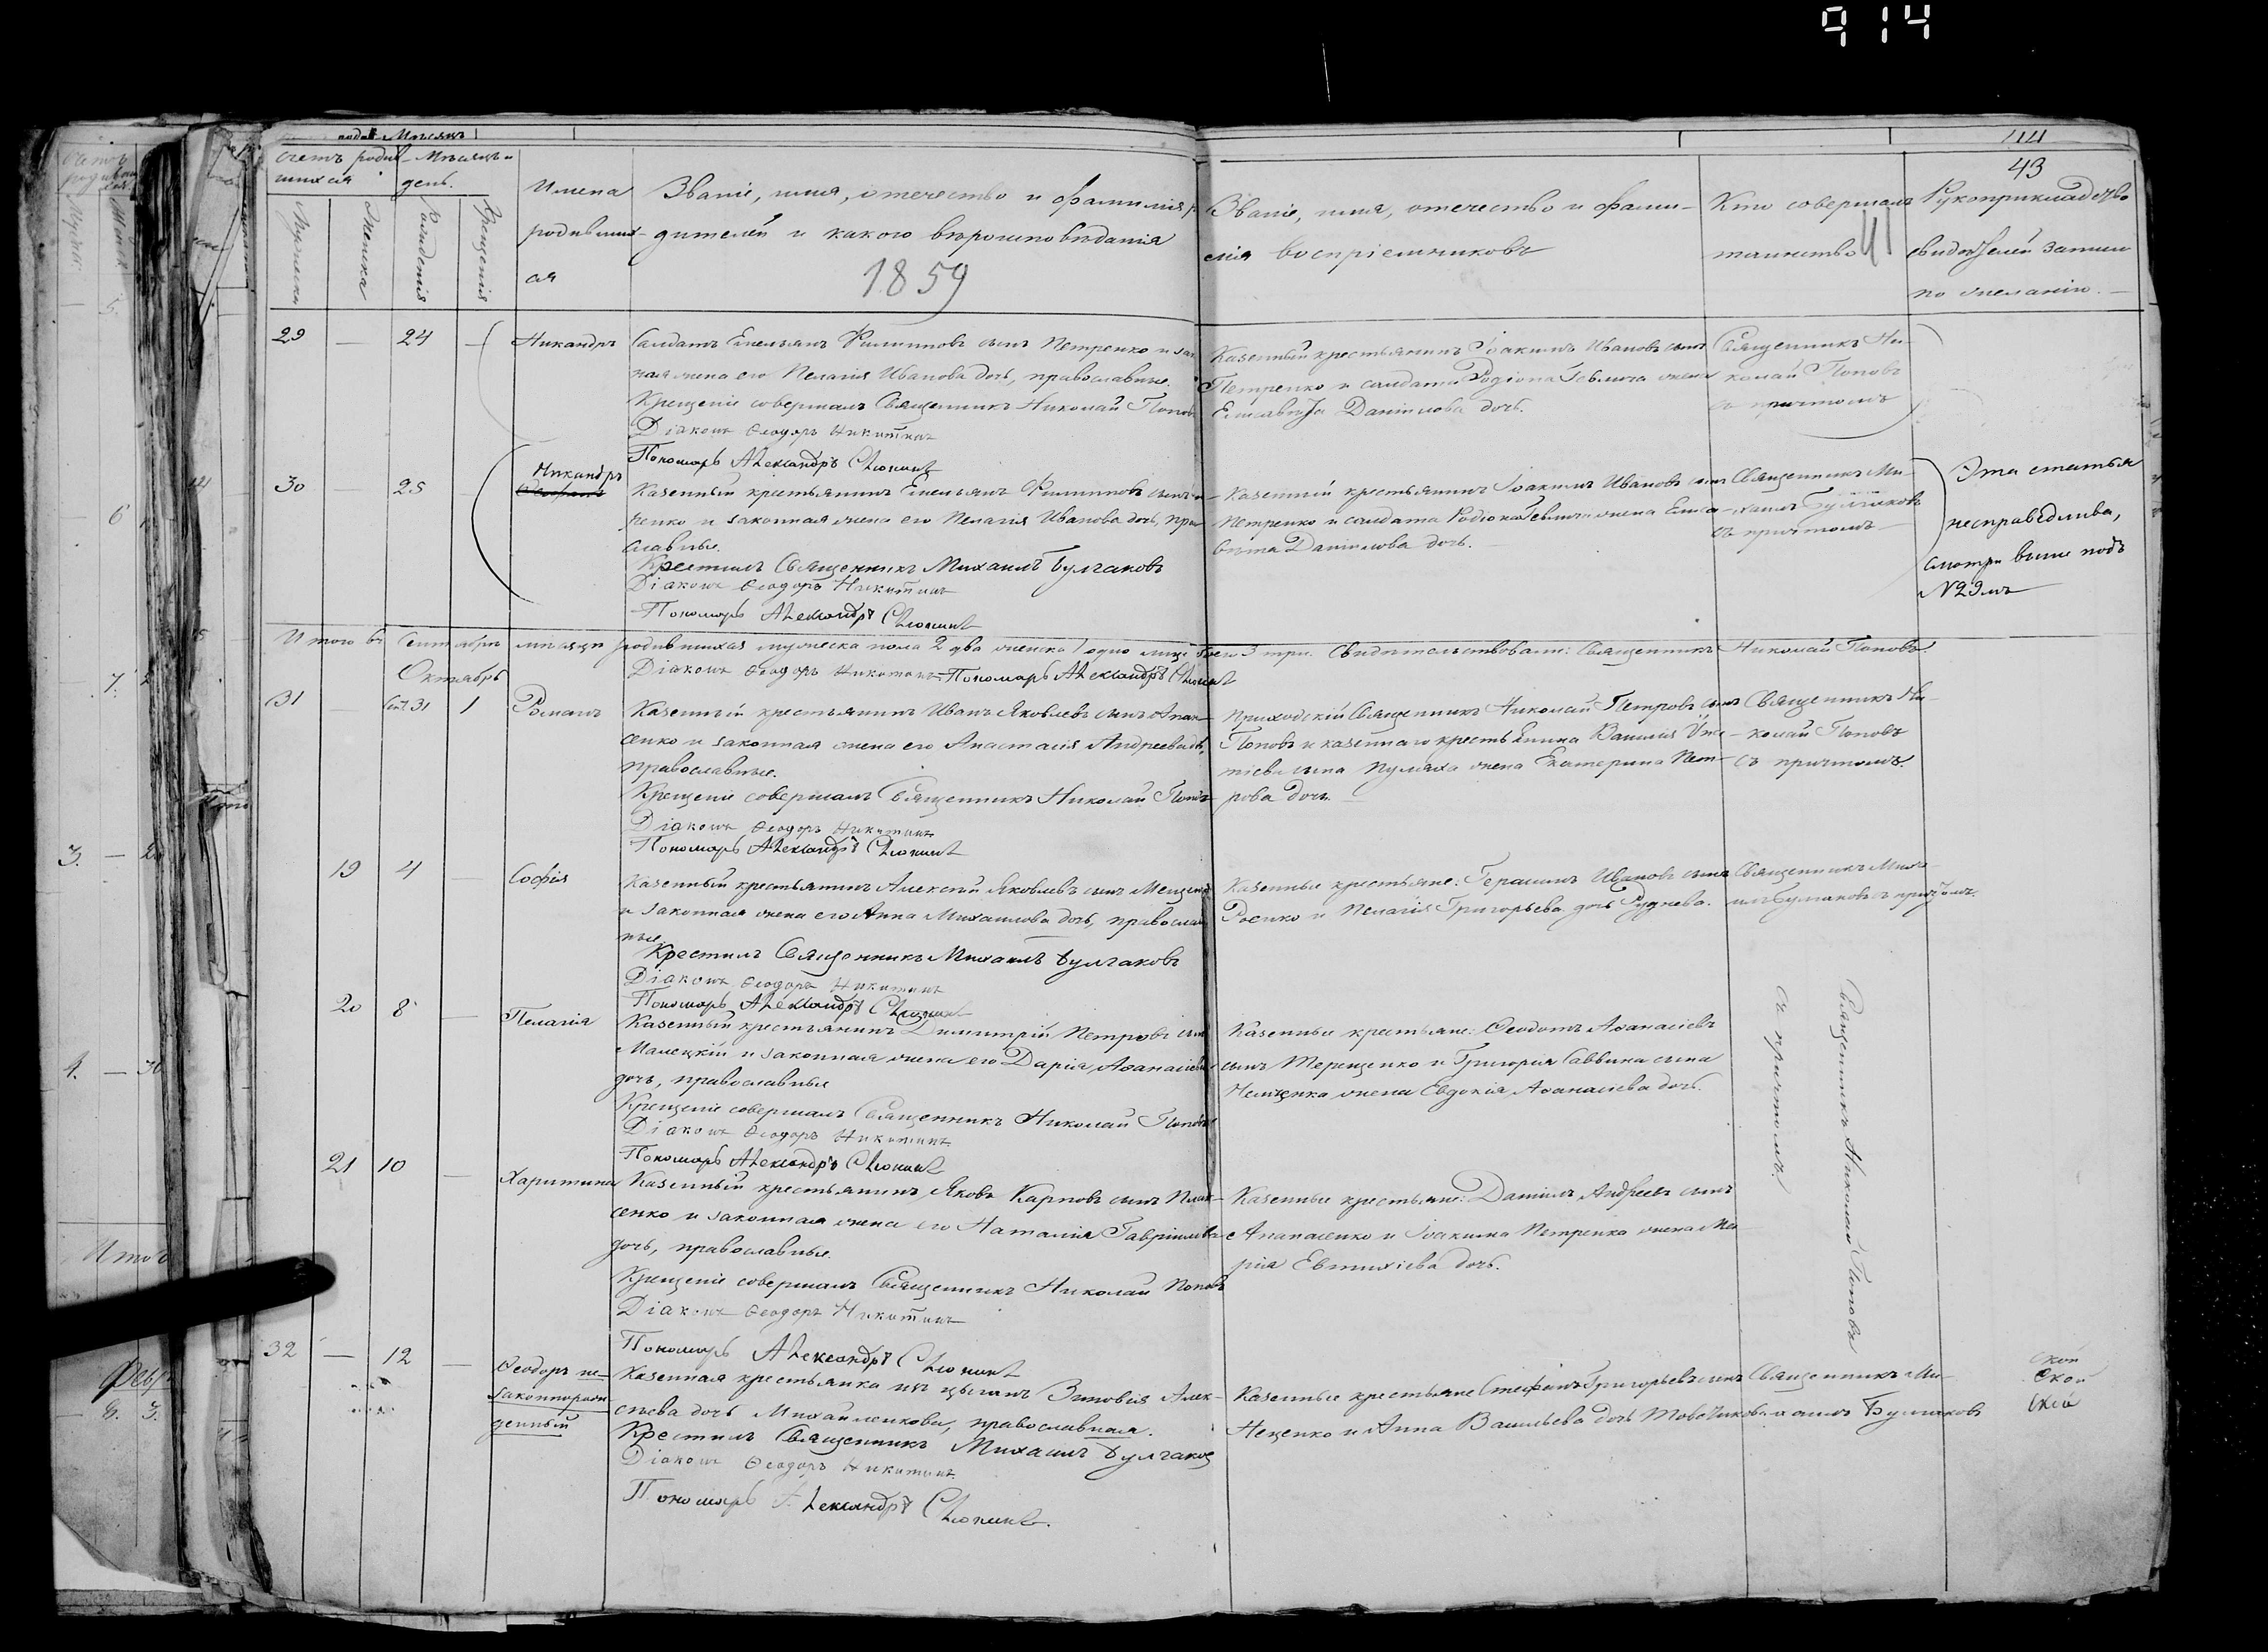 914
114
43
Счетъ родив- Мѣсяцъ и
шихся день.
Мужеска
Женска
Рожденія
Крещенія
Имена
родивших-
ся
Званіе, имя, отечество и фамилія ро-
дителей и какого вѣроисповѣданія
1859
Званіе, имя, отечество и фами-
лія воспріемниковъ
Кто совершалъ
таинство
41
Рукоприкладство
свидѣтелей записи
по желанію.
29 — 24 — Никандръ
Салдатъ Емельянъ Филипповъ сынъ Петренко и зак
ная жена его Пелагія Иванова дочь, православные.
Крещеніе совершалъ Священникъ Николай Поповъ
Діаконъ Ѳеодоръ Никитинъ
Пономарь Александръ
Казенный крестьянинъ Іоакимъ Ивановъ сынъ
Петренко и салдата Родіона жена
Елисавета Даніилова дочь.
Священникъ Ни-
колай Поповъ
съ причтомъ
30 25 — Никандръ
Казенный крестьянинъ Емельянъ Филипповъ сынъ Пе-
тренко и законная жена его Пелагія Иванова дочь, право-
славные.
Крестилъ Священникъ Михаилъ Булгаковъ
Діаконъ Ѳеодоръ Никитинъ
Пономарь Александръ
Казенный крестьянинъ Іоакимъ Ивановъ сынъ
Петренко и салдата Родіона жена Елиса-
вета Даніилова дочь.
Священникъ Ми-
хаилъ Булгаковъ
съ причтомъ
Эта статья
несправедлива,
смотри выше подъ
№ 29мъ
Итого въ Сентябрѣ мѣсяцѣ родившихся мужеска пола 2 два женска 1 одно лице всего 3 три. Свидѣтельствовали: Священникъ Николай Поповъ
Діаконъ Ѳеодоръ Никитинъ Пономарь Александръ
Октябрь
31 Сент. 31 1 Романъ
Казенный крестьянинъ Иванъ Яковлевъ сынъ Апана-
сенко и законная жена его Анастасія Андреева дочь,
православные.
Крещеніе совершалъ Священникъ Николай Поповъ
Діаконъ Ѳеодоръ Никитинъ
Пономарь Александръ
Приходскій Священникъ Николай Петровъ сынъ
Поповъ и казеннаго крестьянина Василія
сына жена Екатерина Пет-
рова дочь.
Священникъ Ни-
колай Поповъ
съ причтомъ.
19 4 — Софія
Казенный крестьянинъ Алексѣй Яковлевъ сынъ
и законная жена его Анна Михаилова дочь, православ
ные
Крестилъ Священникъ Михаилъ Булгаковъ
Діаконъ Ѳеодоръ Никитинъ
Пономарь Александръ
Казенные крестьяне: Герасимъ Ивановъ сынъ
Роенко и Пелагія Григорьева дочь Руднева.
Священникъ Миха-
илъ Булгаковъ съ причтомъ.
20 8 — Пелагія
Казенный крестьянинъ Димитрій Петровъ сынъ
Малецкій и законная жена его Дарія Аѳанасіева
дочь, православные
Крещеніе совершалъ Священникъ Николай Поповъ
Діаконъ Ѳеодоръ Никитинъ
Пономарь Александръ
Казенные крестьяне: Ѳеодотъ Аѳанасіевъ
сынъ Терещенко и Григорія Саввина сына
жена Евдокія Аѳанасіева дочь.
Священникъ Николай Поповъ
съ причтомъ.
21 10 — Харитина
Казенный крестьянинъ Яковъ Карповъ сынъ
сенко и законная жена его Наталія Гавріилова
дочь, православные.
Крещеніе совершалъ Священникъ Николай Поповъ
Діаконъ Ѳеодоръ Никитинъ
Пономарь Александръ
Казенные крестьяне: Даніилъ Андреевъ сынъ
Апанасенко и Іоакима Петренка жена Ма-
рія Евтихіева дочь.
32 — 12 — Ѳеодоръ не-
законнорож
денный
Казенная крестьянка изъ цыганъ Зиновія Алек-
сѣева дочь Михайленкова, православная.
Крестилъ Священникъ Михаилъ Булгаковъ
Діаконъ Ѳеодоръ Никитинъ
Пономарь Александръ
Казенные крестьяне Стефанъ Григорьевъ сынъ
Нещенко и Анна Васильева дочь
Священникъ Ми-
хаилъ Булгаковъ